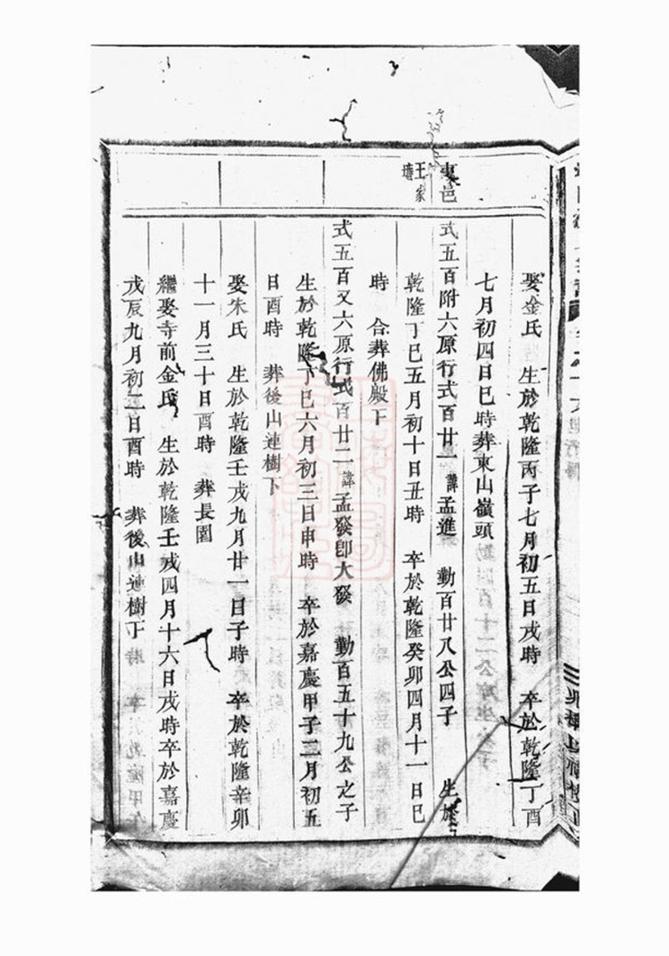 娶金氏　生於乾隆丙子七月初五日戌時　卒於乾隆丁酉
七月初四日巳時葬東山嶺頭
東邑
王家
式五百附六原行式百廿一諱孟進　勤百廿八公四子　生於
乾隆丁巳五月初十日丑時　卒於乾隆癸卯四月十一日巳
時　合葬佛殿下
式五百又六原行式百廿二諱孟發印大發　勤百五十九公之子
生於乾隆丁巳六月初三日申時　卒於嘉慶甲子二月初五
日酉時　葬後山連樹下
娶朱氏　生於乾隆壬戌九月廿一日子時　卒於乾隆辛卯
十一月三十日酉時　葬長園
繼娶寺前金氏　生於乾隆壬戌四月十六日戌時卒於嘉慶
戊辰九月初二日酉時　葬後山連樹下